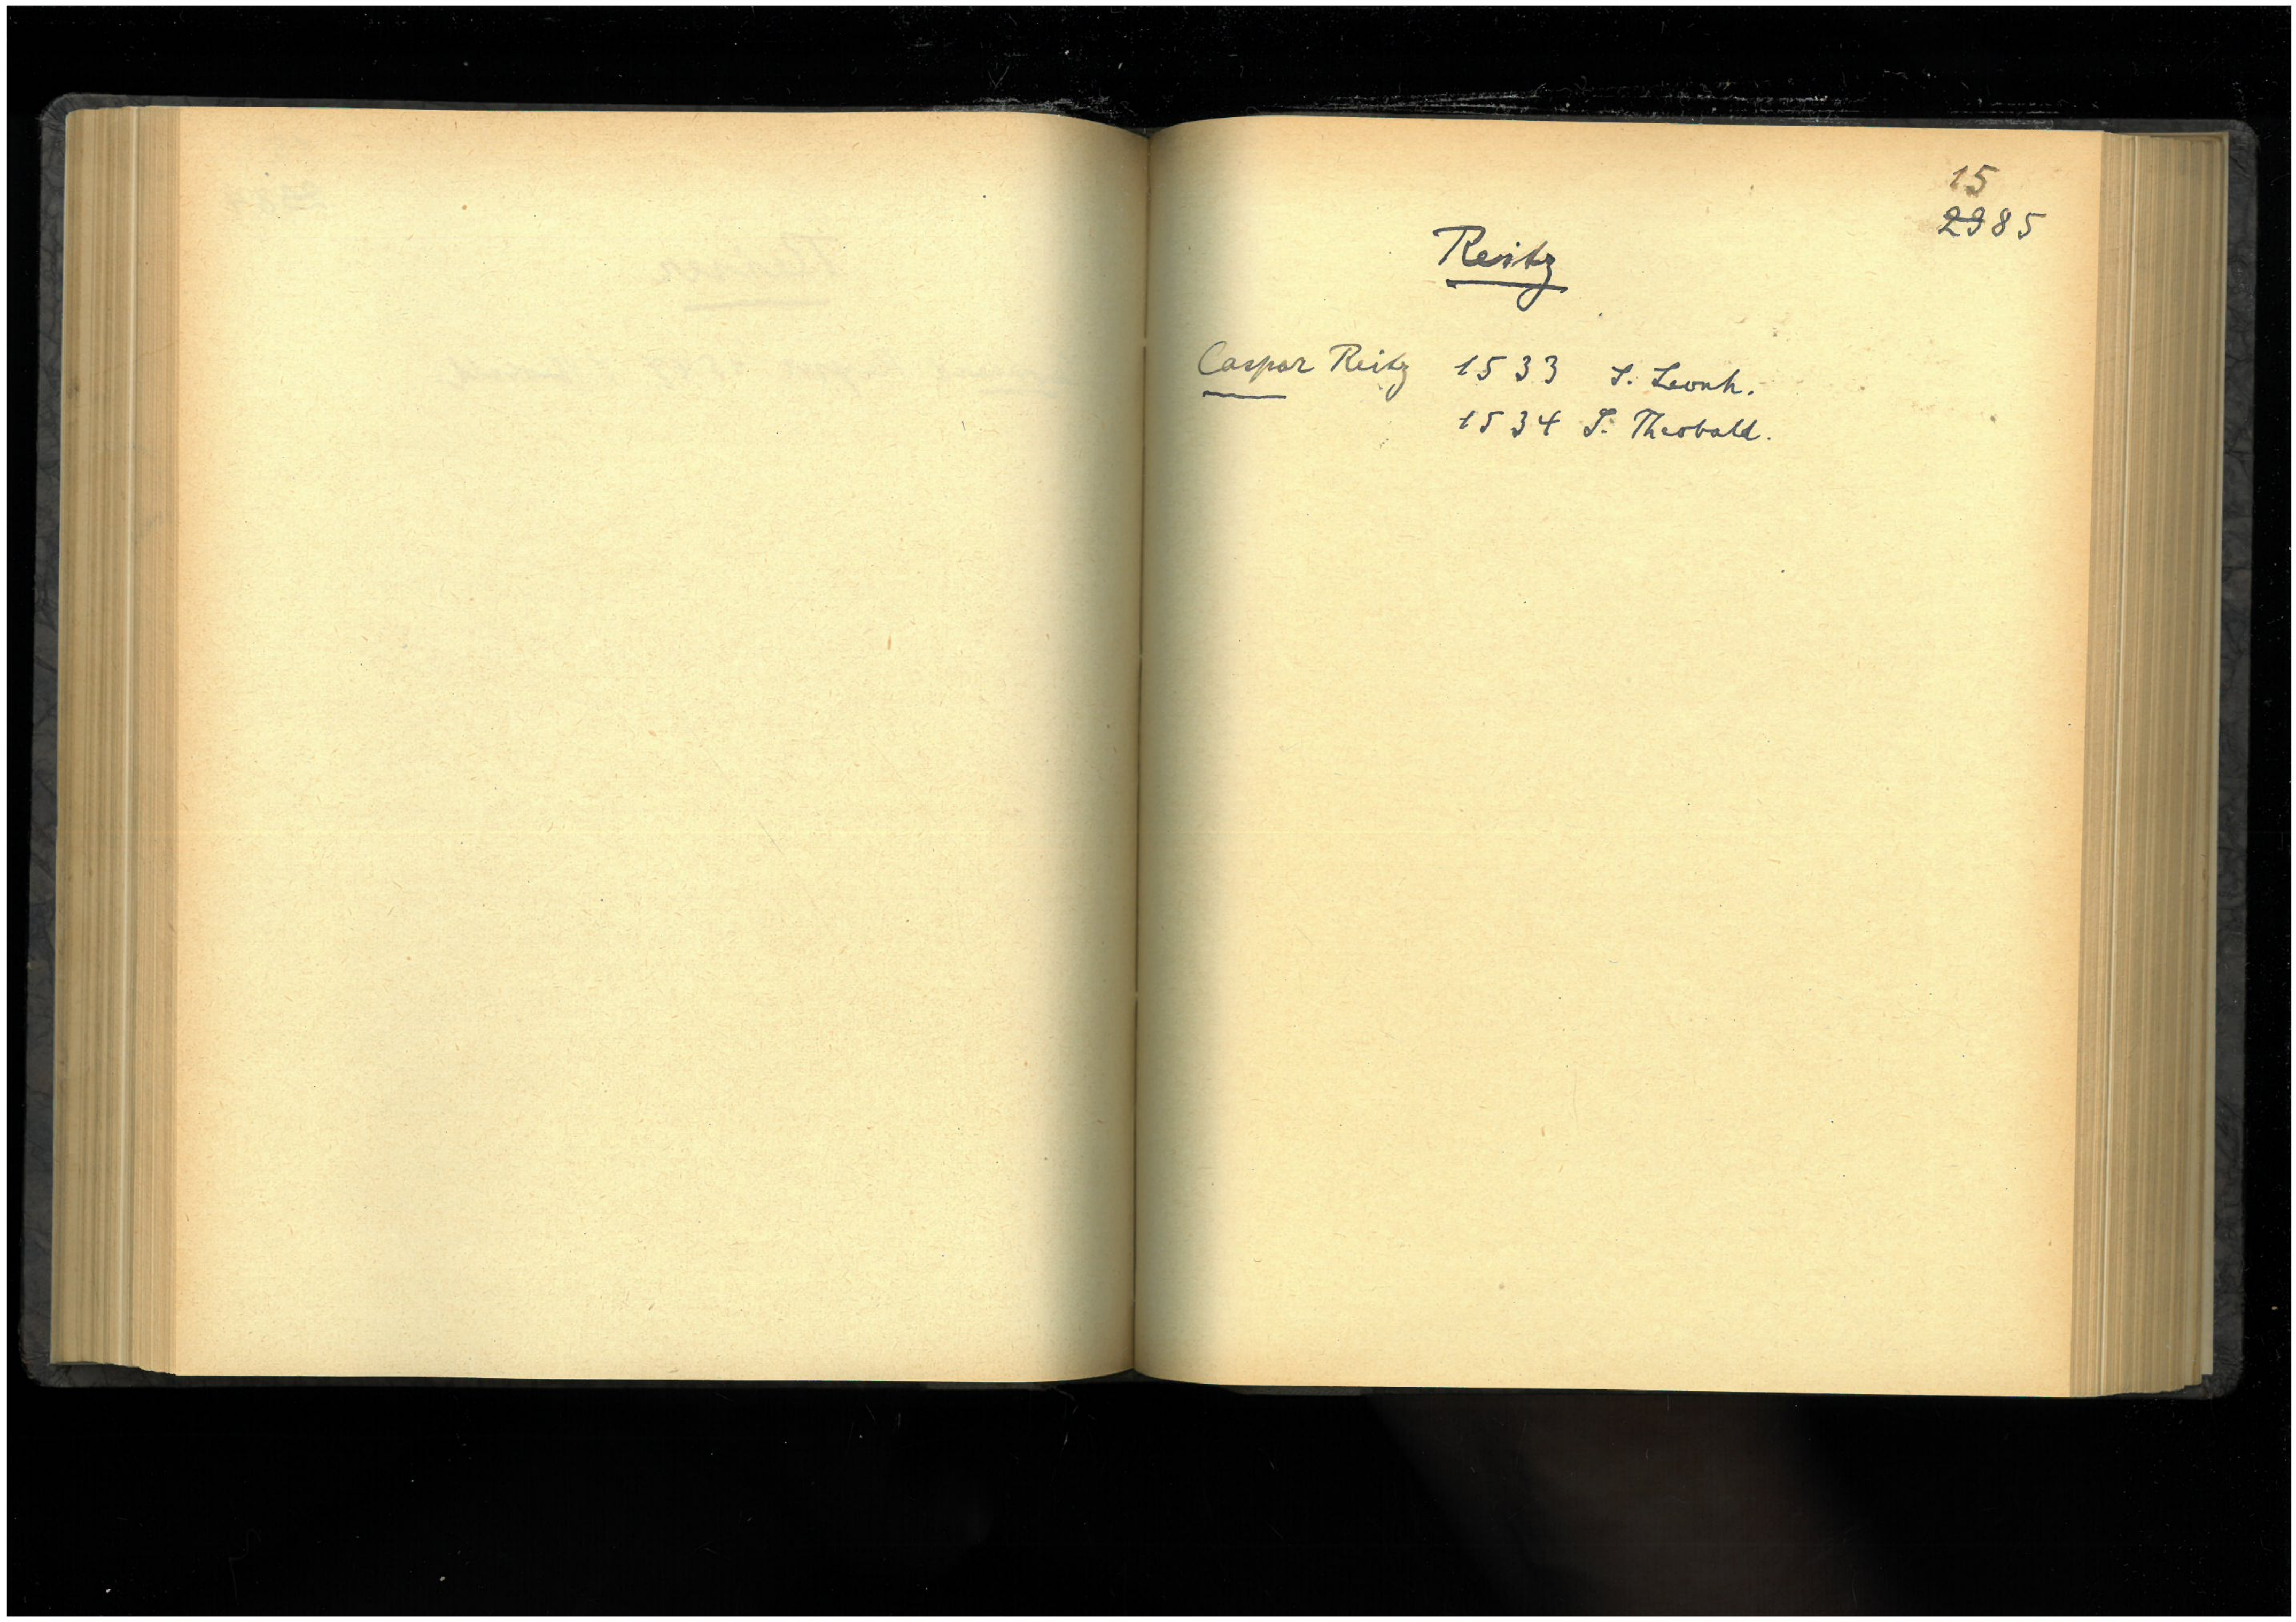 15
2985
Reitz
Caspar Reitz 1533 S. Leonh.
1534 S. Theobald.